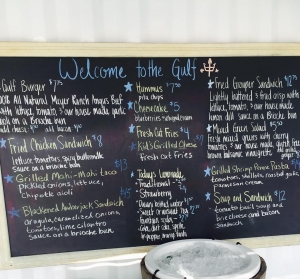 Welcome to the Gulf
Gulf Burger $7.75
100% All Natural Meyer Ranch Angus Beef
with lettuce, tomato, and our house made
sauce on a Brioche bun
add cheese $.50 add bacon
Fried Chicken Sandwich $8
Lettuce, tomatoes, spicy buttermilk
sauce on a brioche bun
Grilled Mahi-Mahi Tacos $13
Pickled onions, lettuce,
chipotle aioli
Blackened Amberjack Sandwich $15
arugula, caramelized onions,
tomatoes, lime cilantro
sauce on a brioche bun
Hummus $7.50
pita chips
Cheesecake $5
blueberries
Fresh Cut Fries $4
Kid's Grilled Cheese
Fresh Cut Fries
Today's Lemonade
Traditional
Strawberry
Fried Grouper Sandwich $12
Lightly battered & fried crisp with
lettuce, tomato, & our house made
lemon dill sauce on a Brioche bun
Mixed Green Salad $5
tomatoes,
balsamic vinaigrette
Grilled Shrimp Penne Pasta
tomatoes, shallots, roasted garlic,
parmesan cream
Soup and Sandwich $12
tomato basil soup and
brie cheese and bacon
Sandwich.